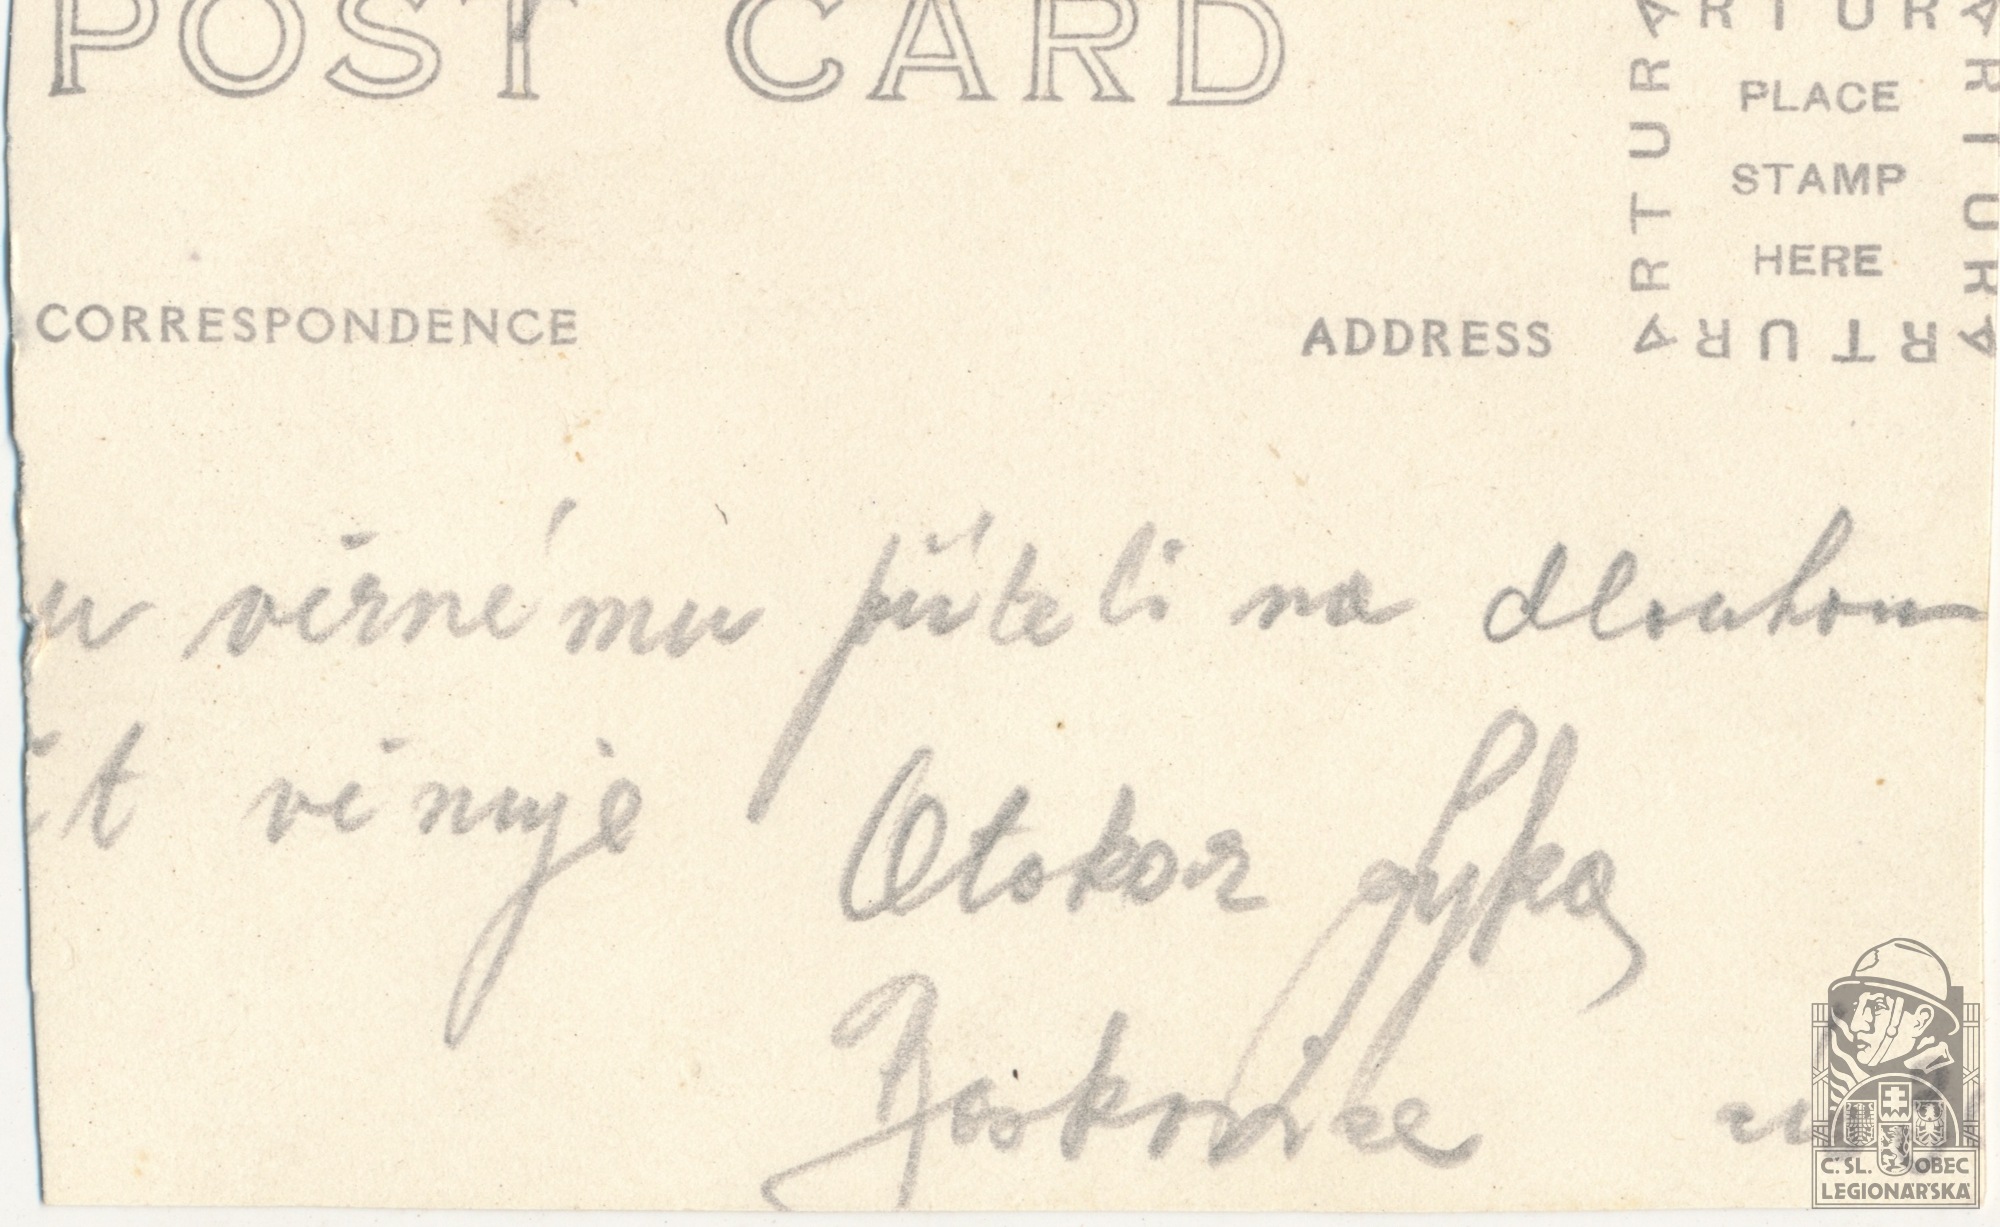 POST CARD
ARTURA
PLACE
STAMP
HERE
ARTURA
ARTURA
ARTURA
CORRESPONDENCE
ADDRESS
u věrnému příteli na dlouhou
čt věnuje Otokar
Č.SL. OBEC
LEGIONÁŘSKÁ